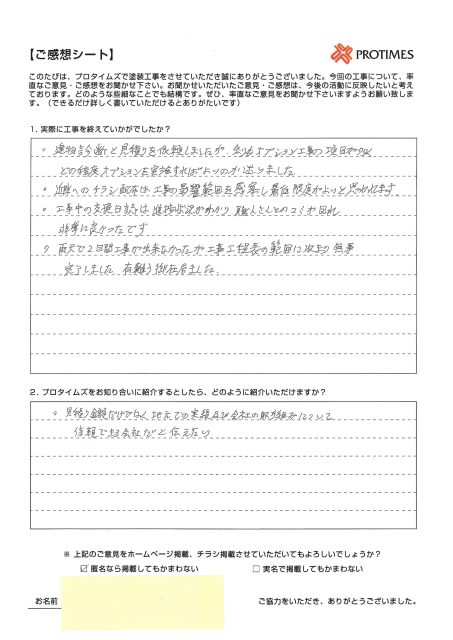 【ご感想シート】
PROTIMES
このたびは、プロタイムズで塗装工事をさせていただき誠にありがとうございました。今回の工事について、率
直なご意見・ご感想をお聞かせ下さい。お聞かせいただいたご意見・ご感想は、今後の活動に反映したいと考え
ております。どのような些細なことでも結構です。ぜひ、率直なご意見をお聞かせ下さいますようお願い致しま
す。（できるだけ詳しく書いていただけるとありがたいです）
1. 実際に工事を終えていかがでしたか？
。建物診断と見積りを依頼しましたが オプション工事の項目が
どの程度オプションを実施すればよいのか迷いました
。近隣へのチラシ配布は工事の影響範囲を考察し最低限度がよいと思われます
。工事中の交換日誌は進捗状況がわかり職人さんとのコミが図れ
非常に良かったです
雨天で2日間工事が出来なかったが工事工程表の範囲に収まり無事
完了しました 有難う御在居ました.
2. プロタイムズをお知り合いに紹介するとしたら、どのように紹介いただけますか？
。見積り金額だけでなく地元での実績及び会社の取り組みについて
信頼できる会社だと伝えたい
※ 上記のご意見をホームページ掲載、チラシ掲載させていただいてもよろしいでしょうか？
☑ 匿名なら掲載してもかまわない
□ 実名で掲載してもかまわない
お名前
ご協力をいただき、ありがとうございました。